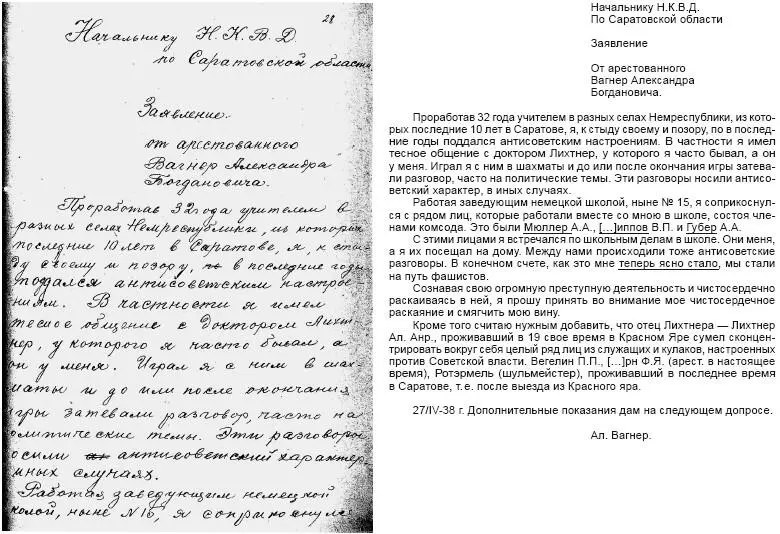 28
Начальнику Н.К.В.Д.
по Саратовской области
Заявление.
от арестованного
Вагнер Александра
Богдановича.
Проработав 32 года учителем в
разных селах Немреспублики, из которых
последние 10 лет в Саратове, я, к сты-
ду своему и позору, по в последние годы
поддался антисоветским настрое-
ниям. В частности я имел
тесное общение с доктором Лихт-
нер, у которого я часто бывал, а
он у меня. Играл я с ним в шах-
маты и до или после окончания
игры затевали разговор, часто на
олитические темы. Эти разговоры
осили антисоветский характер,
иных случаях.
Работая заведующим немецкой
колой, ныне №15, я соприкоснулся
Начальнику Н.К.В.Д.
По Саратовской области
Заявление
От арестованного
Вагнер Александра
Богдановича.
Проработав 32 года учителем в разных селах Немреспублики, из кото-
рых последние 10 лет в Саратове, я, к стыду своему и позору, по в послед-
ние годы поддался антисоветским настроениям. В частности я имел
тесное общение с доктором Лихтнер, у которого я часто бывал, а он
у меня. Играл я с ним в шахматы и до или после окончания игры затева-
ли разговор, часто на политические темы. Эти разговоры носили антисо-
ветский характер, в иных случаях.
Работая заведующим немецкой школой, ныне № 15, я соприкоснул-
ся с рядом лиц, которые работали вместе со мною в школе, состоя чле-
нами комсода. Это были Мюллер А.А., [...]иппов В.П. и Губер А.А.
С этими лицами я встречался по школьным делам в школе. Они меня,
а я их посещал на дому. Между нами происходили тоже антисоветские
разговоры. В конечном счете, как это мне теперь ясно стало, мы стали
на путь фашистов.
Сознавая свою огромную преступную деятельность и чистосердечно
раскаиваясь в ней, я прошу принять во внимание мое чистосердечное
раскаяние и смягчить мою вину.
Кроме того считаю нужным добавить, что отец Лихтнера — Лихтнер
Ал. Анр., проживавший в 19 свое время в Красном Яре сумел сконцен-
трировать вокруг себя целый ряд лиц из служащих и кулаков, настроенных
против Советской власти. Вегелин П.П., [...]рн Ф.Я. (арест. в настоящее
время), Ротэрмель (шульмейстер), проживавший в последнее время
в Саратове, т.е. после выезда из Красного яра.
27/IV-38 г. Дополнительные показания дам на следующем допросе.
Ал. Вагнер.